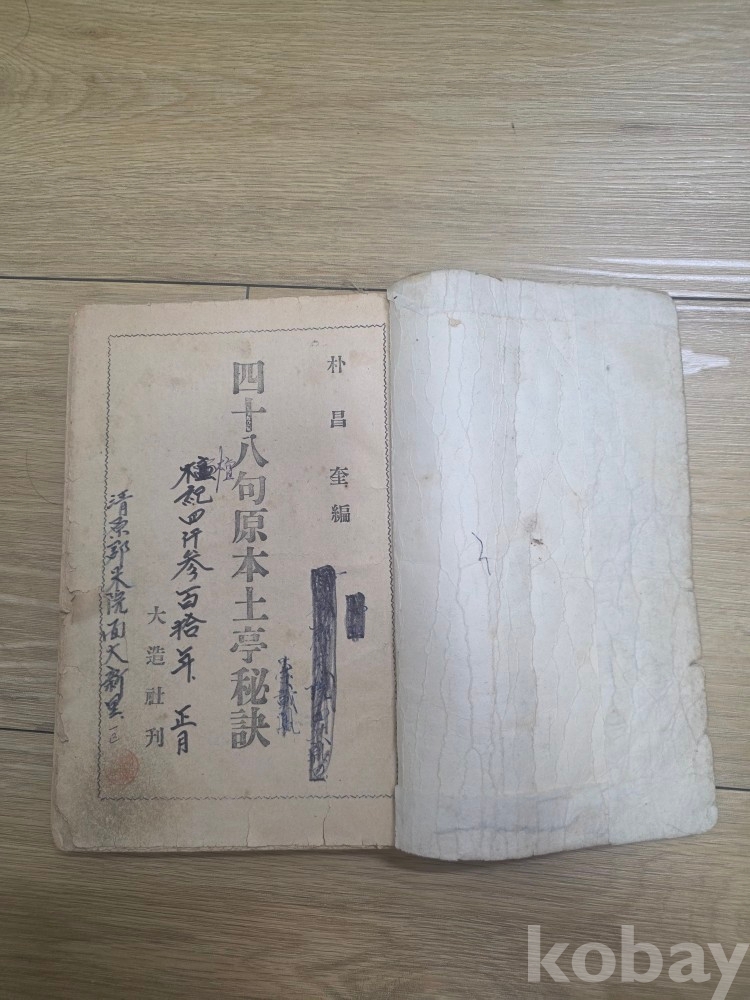 朴昌奎編
四十八句原本土亭秘訣
檀
檀記四仟參百拾年 正月
大造社刊
清原郡米院面大新里
kobay